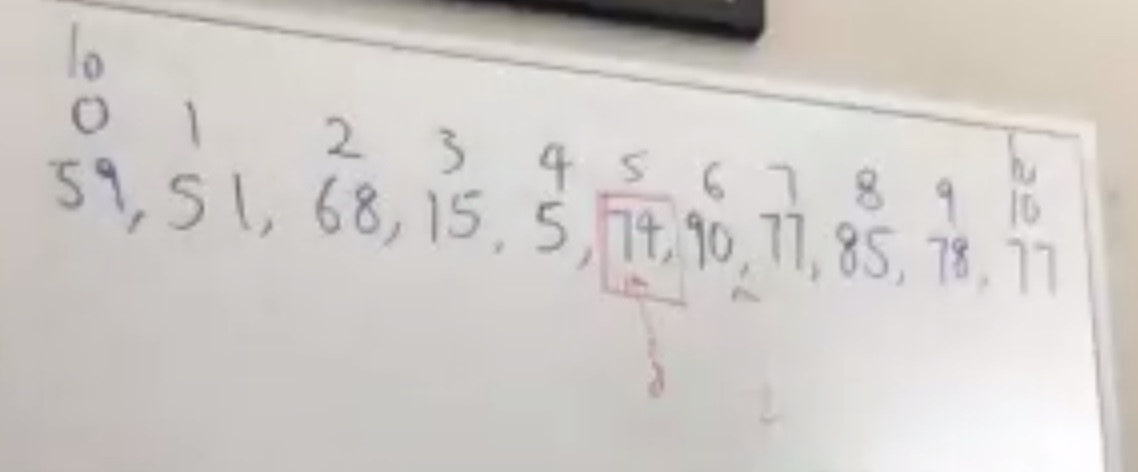 lo hi
0 1 2 3 4 5 6 7 8 9 10
59, 51, 68, 15, 5, 74, 90, 77, 85, 78, 77